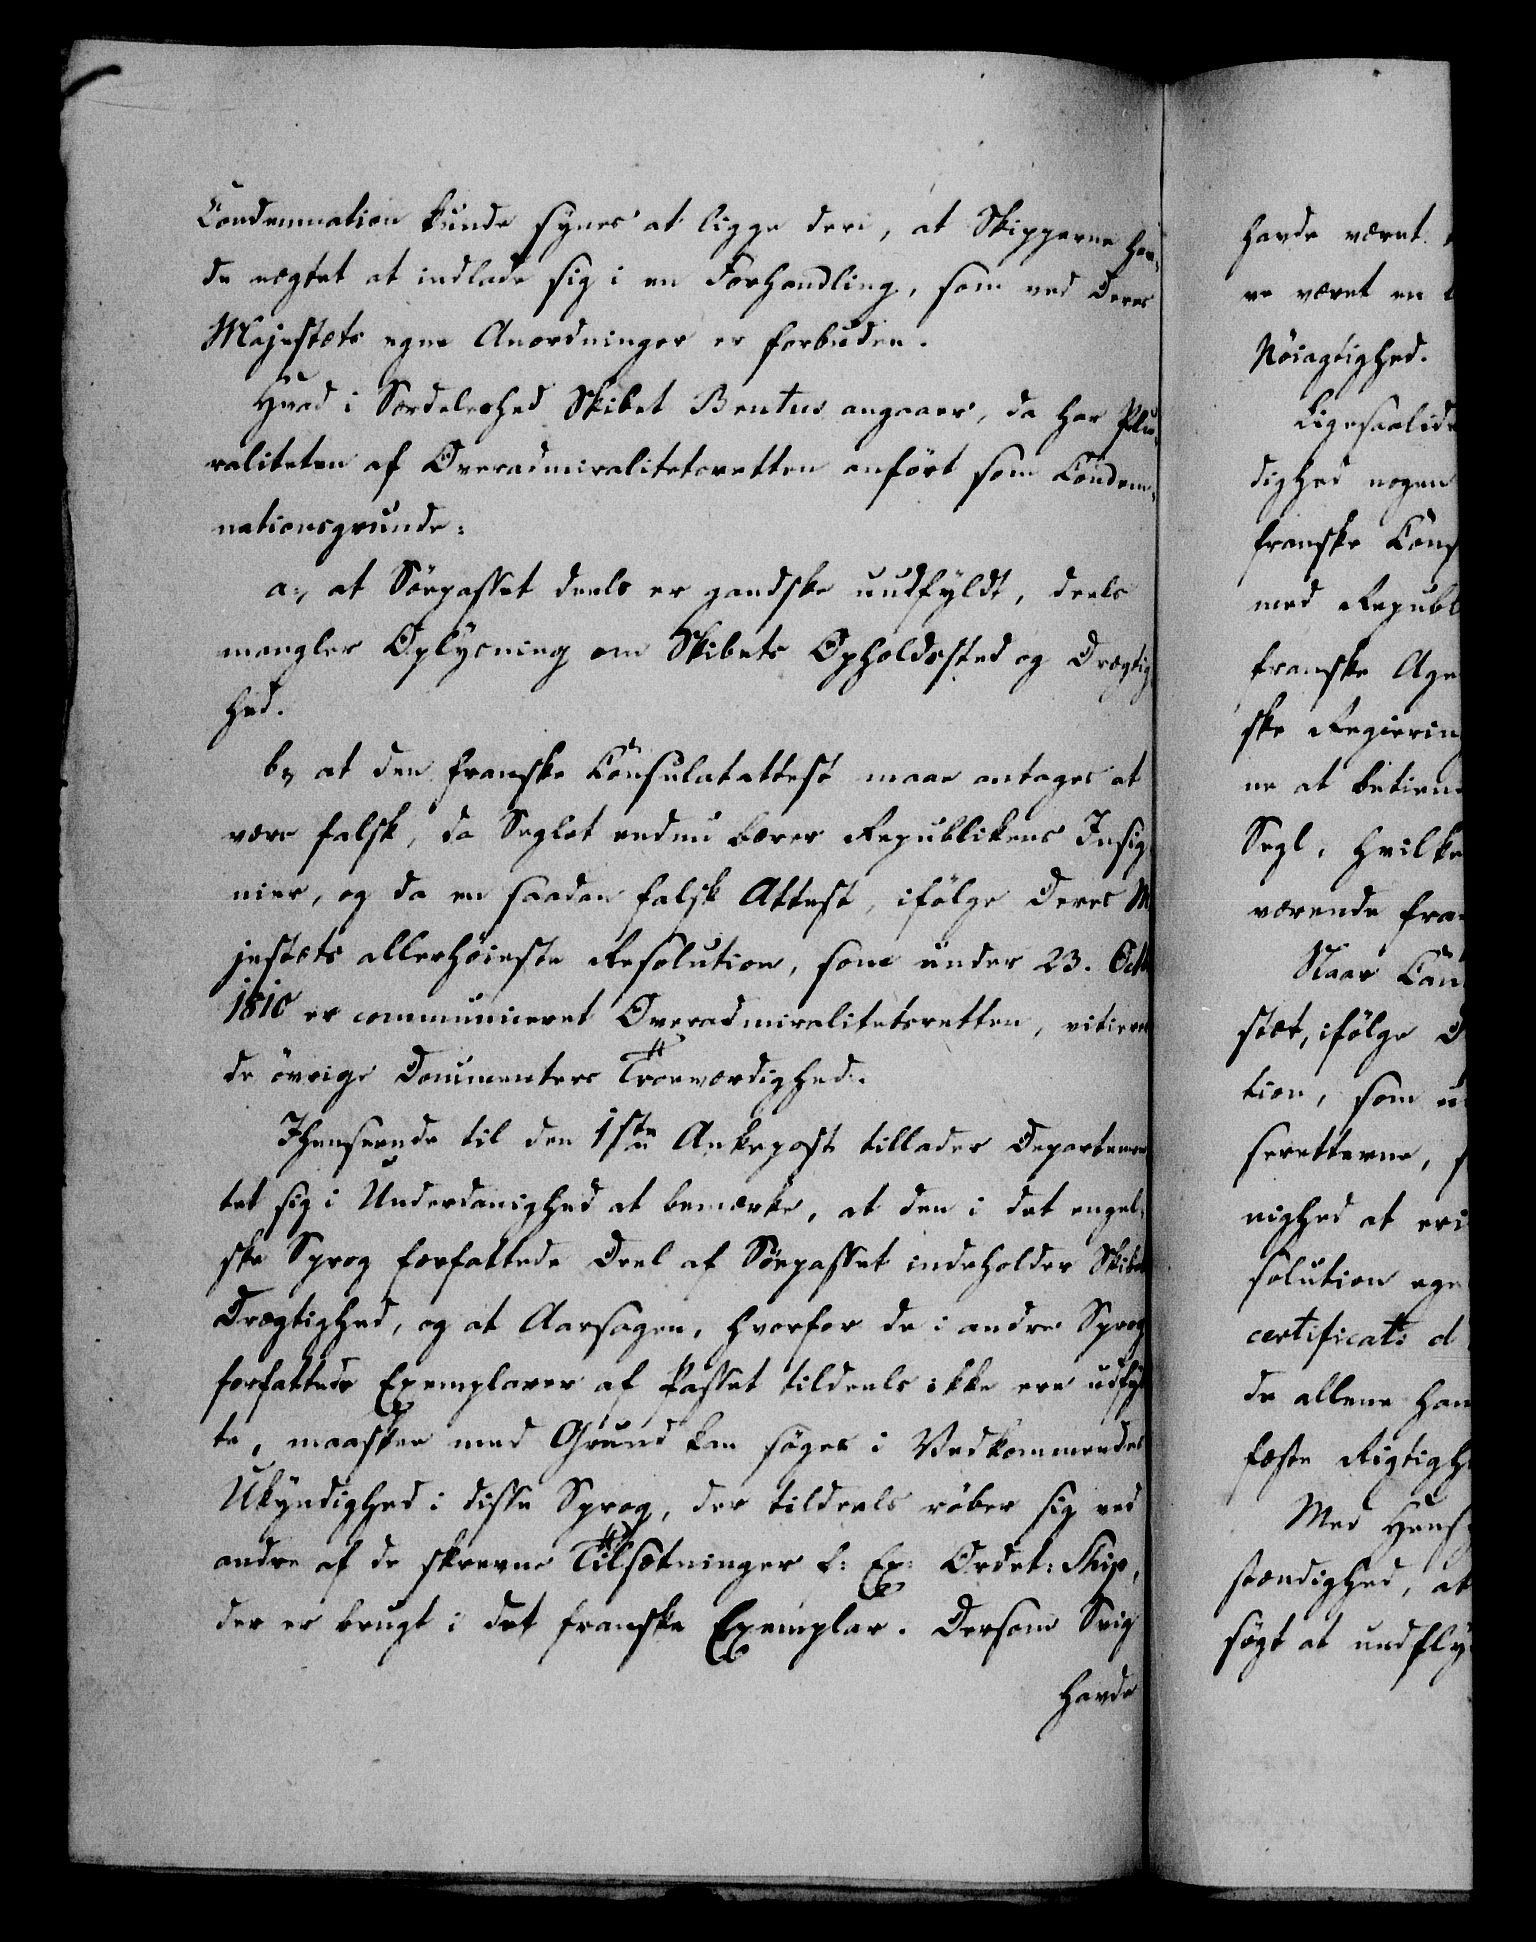 Condemnation kunde synes at ligge deri, at Skipperne hav-
de negtet at indlade sig i en Forhandling, som ved Deres
Majestæts egne Anordninger er forbuden.
Hvad i Særdeleshed Skibet Brutus angaaer, da har Plu-
raliteten af Overadmiralitetsretten anført som Condem-
nationsgrunde:
a., at Søepasset deels er gandske uudfyldt, deels
mangler Oplysning om Skibets Opholdssted og Drægtig-
hed.
b, at den franske Consulatattest maae antages at
være falsk, da Seglet endnu bærer Republikens Insig-
nier, og da en saadan falsk Attest, ifølge Deres M
jestæts allerhøieste Resolution, som under 23. Octb
1810 er communiceret Overadmiralitetsretten, vitierer
de øvrige Documenters Troeværdighed.
Ihenseende til den 1ste Ankepost tillader Departemen
tet sig i Underdanighed at bemærke, at den i det engel-
ske Sprog forfattede Deel af Søepasset indeholder Skibets
Drægtighed, og at Aarsagen, hvorfor de i andre Sprog
forfattede Exemplarer af Passet tildeels ikke ere udfyld
te, maaskee med Grund kan søges i Vedkommendes
Ukyndighed i disse Sprog, der tildeels røber sig ved
andre af de skrevne Tilsætninger f: Ex: Ordet: Ship,
der er brugt i det franske Exemplar. Dersom Svig
havde
havde været
re været en
Nöiagtighed.
Ligesaalid
dighed nogen
franske Cons
med Republ
franske Age
ske Regiering
ne at betiene
Segl, hvilke
værende fra
Naar Con
stæt, ifølge D
tion, som u
seretterne, f
nighed at eri
solution ege
certificats d
de allene han
fæste Rigtigh
Med Hens
stændighed, at
søgt at undfly